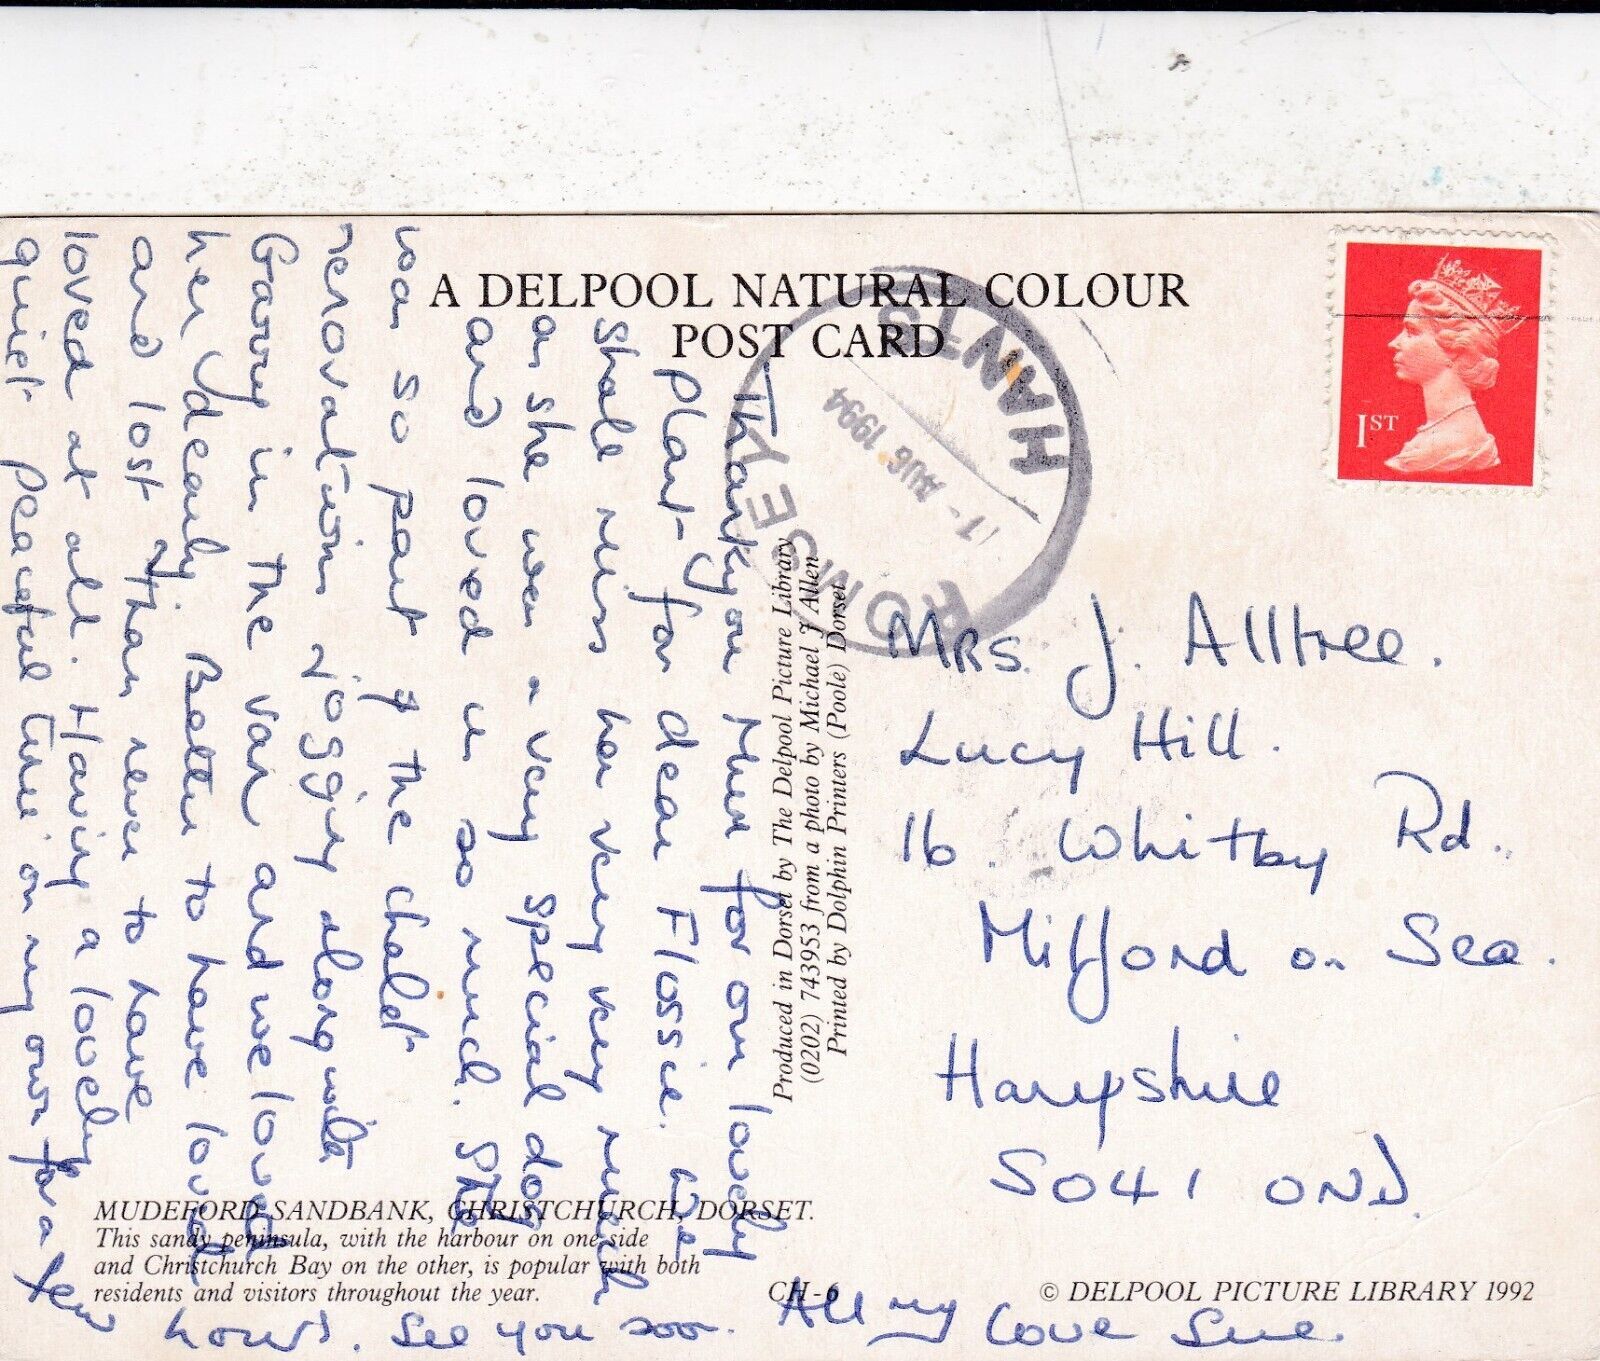 A DELPOOL NATURAL COLOUR
POST CARD
1ST
ROMSEY
HANTS
17 - AUG 1994
Thankyou Mum for our lovely
plant for dear Flossie. We
shall miss her very very much
as she was a very special dog
and loved us so much. She
was so part of the chalet
renovations jogging along with
Garry in the van and we loved
her dearly. Better to have loved
and lost than never to have
loved at all. Having a lovely
quiet peaceful time on my own for a few
hours. See you soon. All my love Sue.
Produced in Dorset by The Delpool Picture Library
(0202) 743953 from a photo by Michael J Allen
Printed by Dolphin Printers (Poole) Dorset
Mrs. J. Alltree.
Lucy Hill.
16. Whitby Rd.
Milford on Sea.
Hampshire
SO41 0ND.
MUDEFORD SANDBANK, CHRISTCHURCH, DORSET.
This sandy peninsula, with the harbour on one side
and Christchurch Bay on the other, is popular with both
residents and visitors throughout the year.
CH-6
© DELPOOL PICTURE LIBRARY 1992